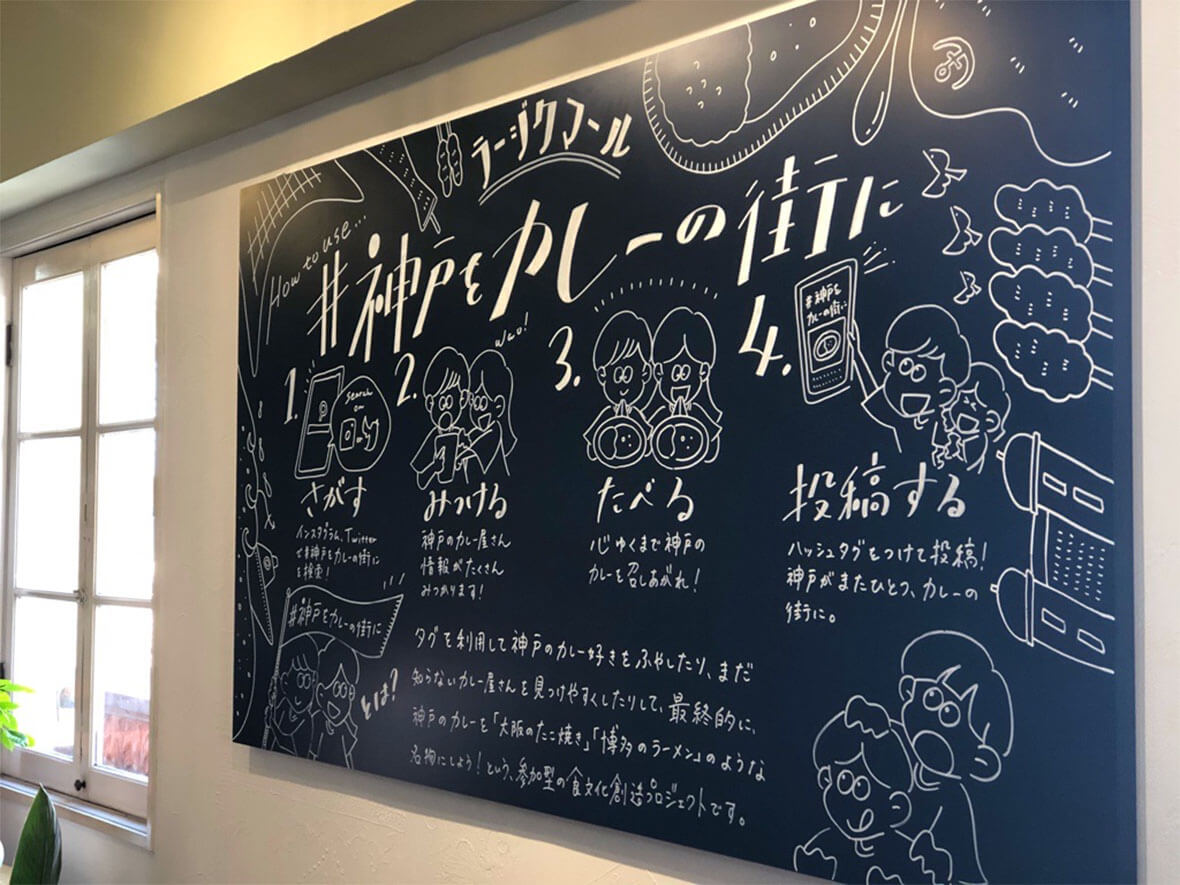 ラージクマール
How to use...
#神戸をカレーの街に
1.
search on
さがす
インスタグラム、Twitter
で#神戸をカレーの街に
を検索！
2.
Wao!
みつける
神戸のカレー屋さん
情報がたくさん
みつかります！
3.
たべる
心ゆくまで神戸の
カレーを召しあがれ！
4.
#神戸を
カレーの街に
投稿する
ハッシュタグをつけて投稿！
神戸がまたひとつ、カレーの
街に。
#神戸をカレーの街に
とは？
タグを利用して神戸のカレー好きをふやしたり、まだ
知らないカレー屋さんを見つけやすくしたりして、最終的に、
神戸のカレーを「大阪のたこ焼き」「博多のラーメン」のような
名物にしよう！という、参加型の食文化創造プロジェクトです。